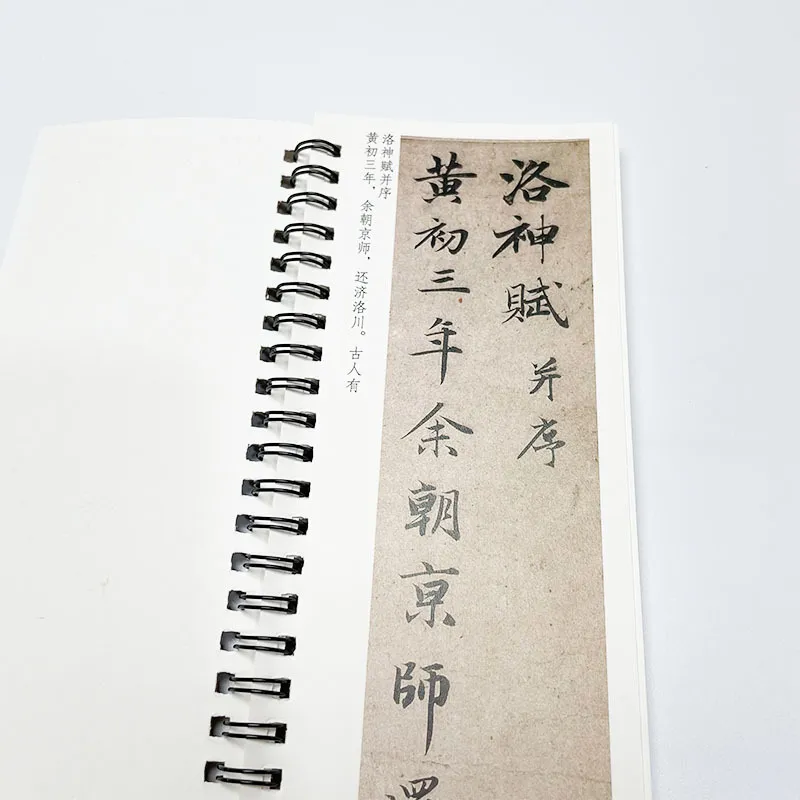 洛神賦并序
黄初三年余朝京師還
洛神赋并序
黄初三年，余朝京师，还济洛川。古人有